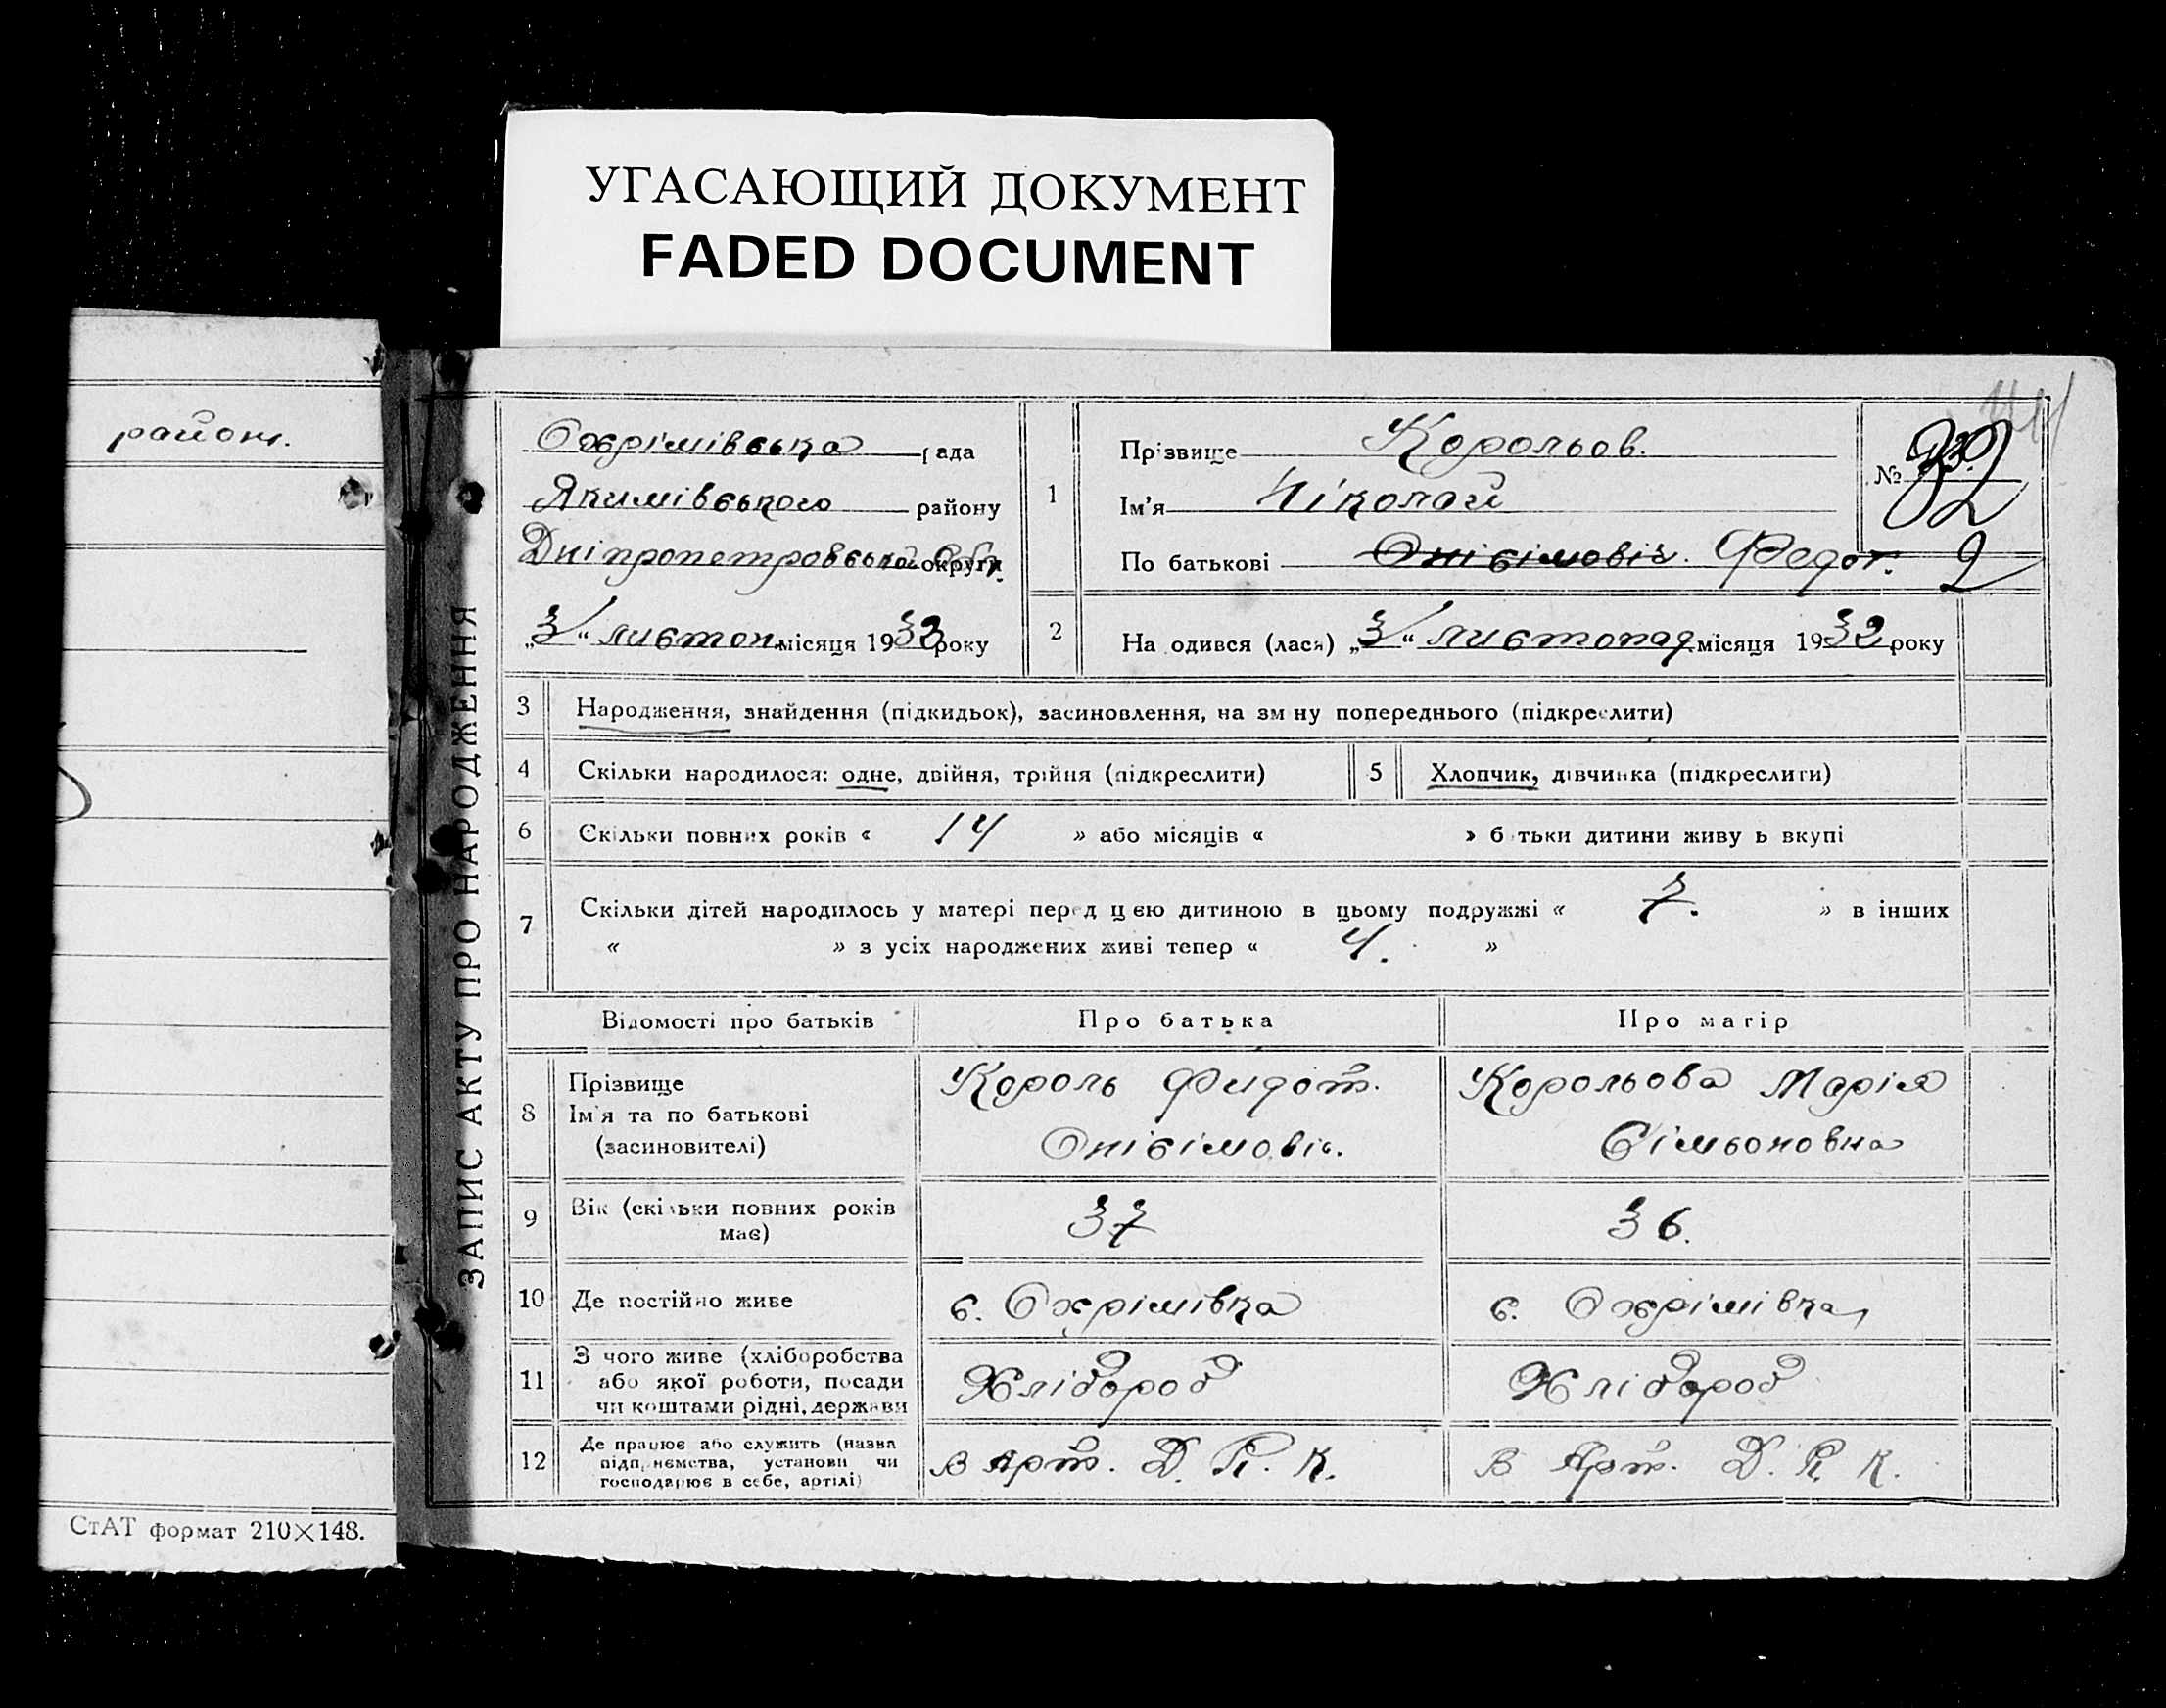 УГАСАЮЩИЙ ДОКУМЕНТ
FADED DOCUMENT
район.
СтАТ формат 210×148.
ЗАПИС АКТУ ПРО НАРОДЖЕННЯ
Охрімівська рада
Якимівського району
Дніпропетровської округи Обл.
„3“ листоп. місяця 1932 року
1
Прізвище Корольов.
Ім'я Ніколай
По батькові Онісімовіч. Федот.
№ 32
2
2 На одився (лася) „3“ листопад. місяця 1932 року
3 Народження, знайдення (підкидьок), засиновлення, на зм ну попереднього (підкреслити)
4 Скільки народилося: одне, двійня, трійня (підкреслити) 5 Хлопчик, дівчинка (підкреслити)
6 Скільки повних років « 14 » або місяців « » б тьки дитини живу ь вкупі
7 Скільки дітей народилось у матері перед цією дитиною в цьому подружжі « 7. » в інших
« » з усіх народжених живі тепер « 4. »
Відомості про батьків Про батька Про матір
8 Прізвище
Ім'я та по батькові
(засиновителі)
Король Фидот.
Онісімовіч.
Корольова Марія
Сімьоновна
9 Вік (скільки повних років
має)
37
36.
10 Де постійно живе с. Охрімівка с. Охрімівка
11 З чого живе (хліборобства
або якої роботи, посади
чи коштами рідні, держави
Хлібороб
Хлібороб
12 Де працює або служить (назва
підприємства, установи чи
господарює в себе, артілі)
в Арт. Д. Р. К.
в Арт. Д. Р. К.